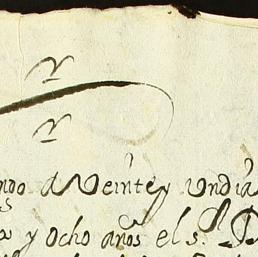 ndo a Veinte y Un dia
s y ocho años el s.r D